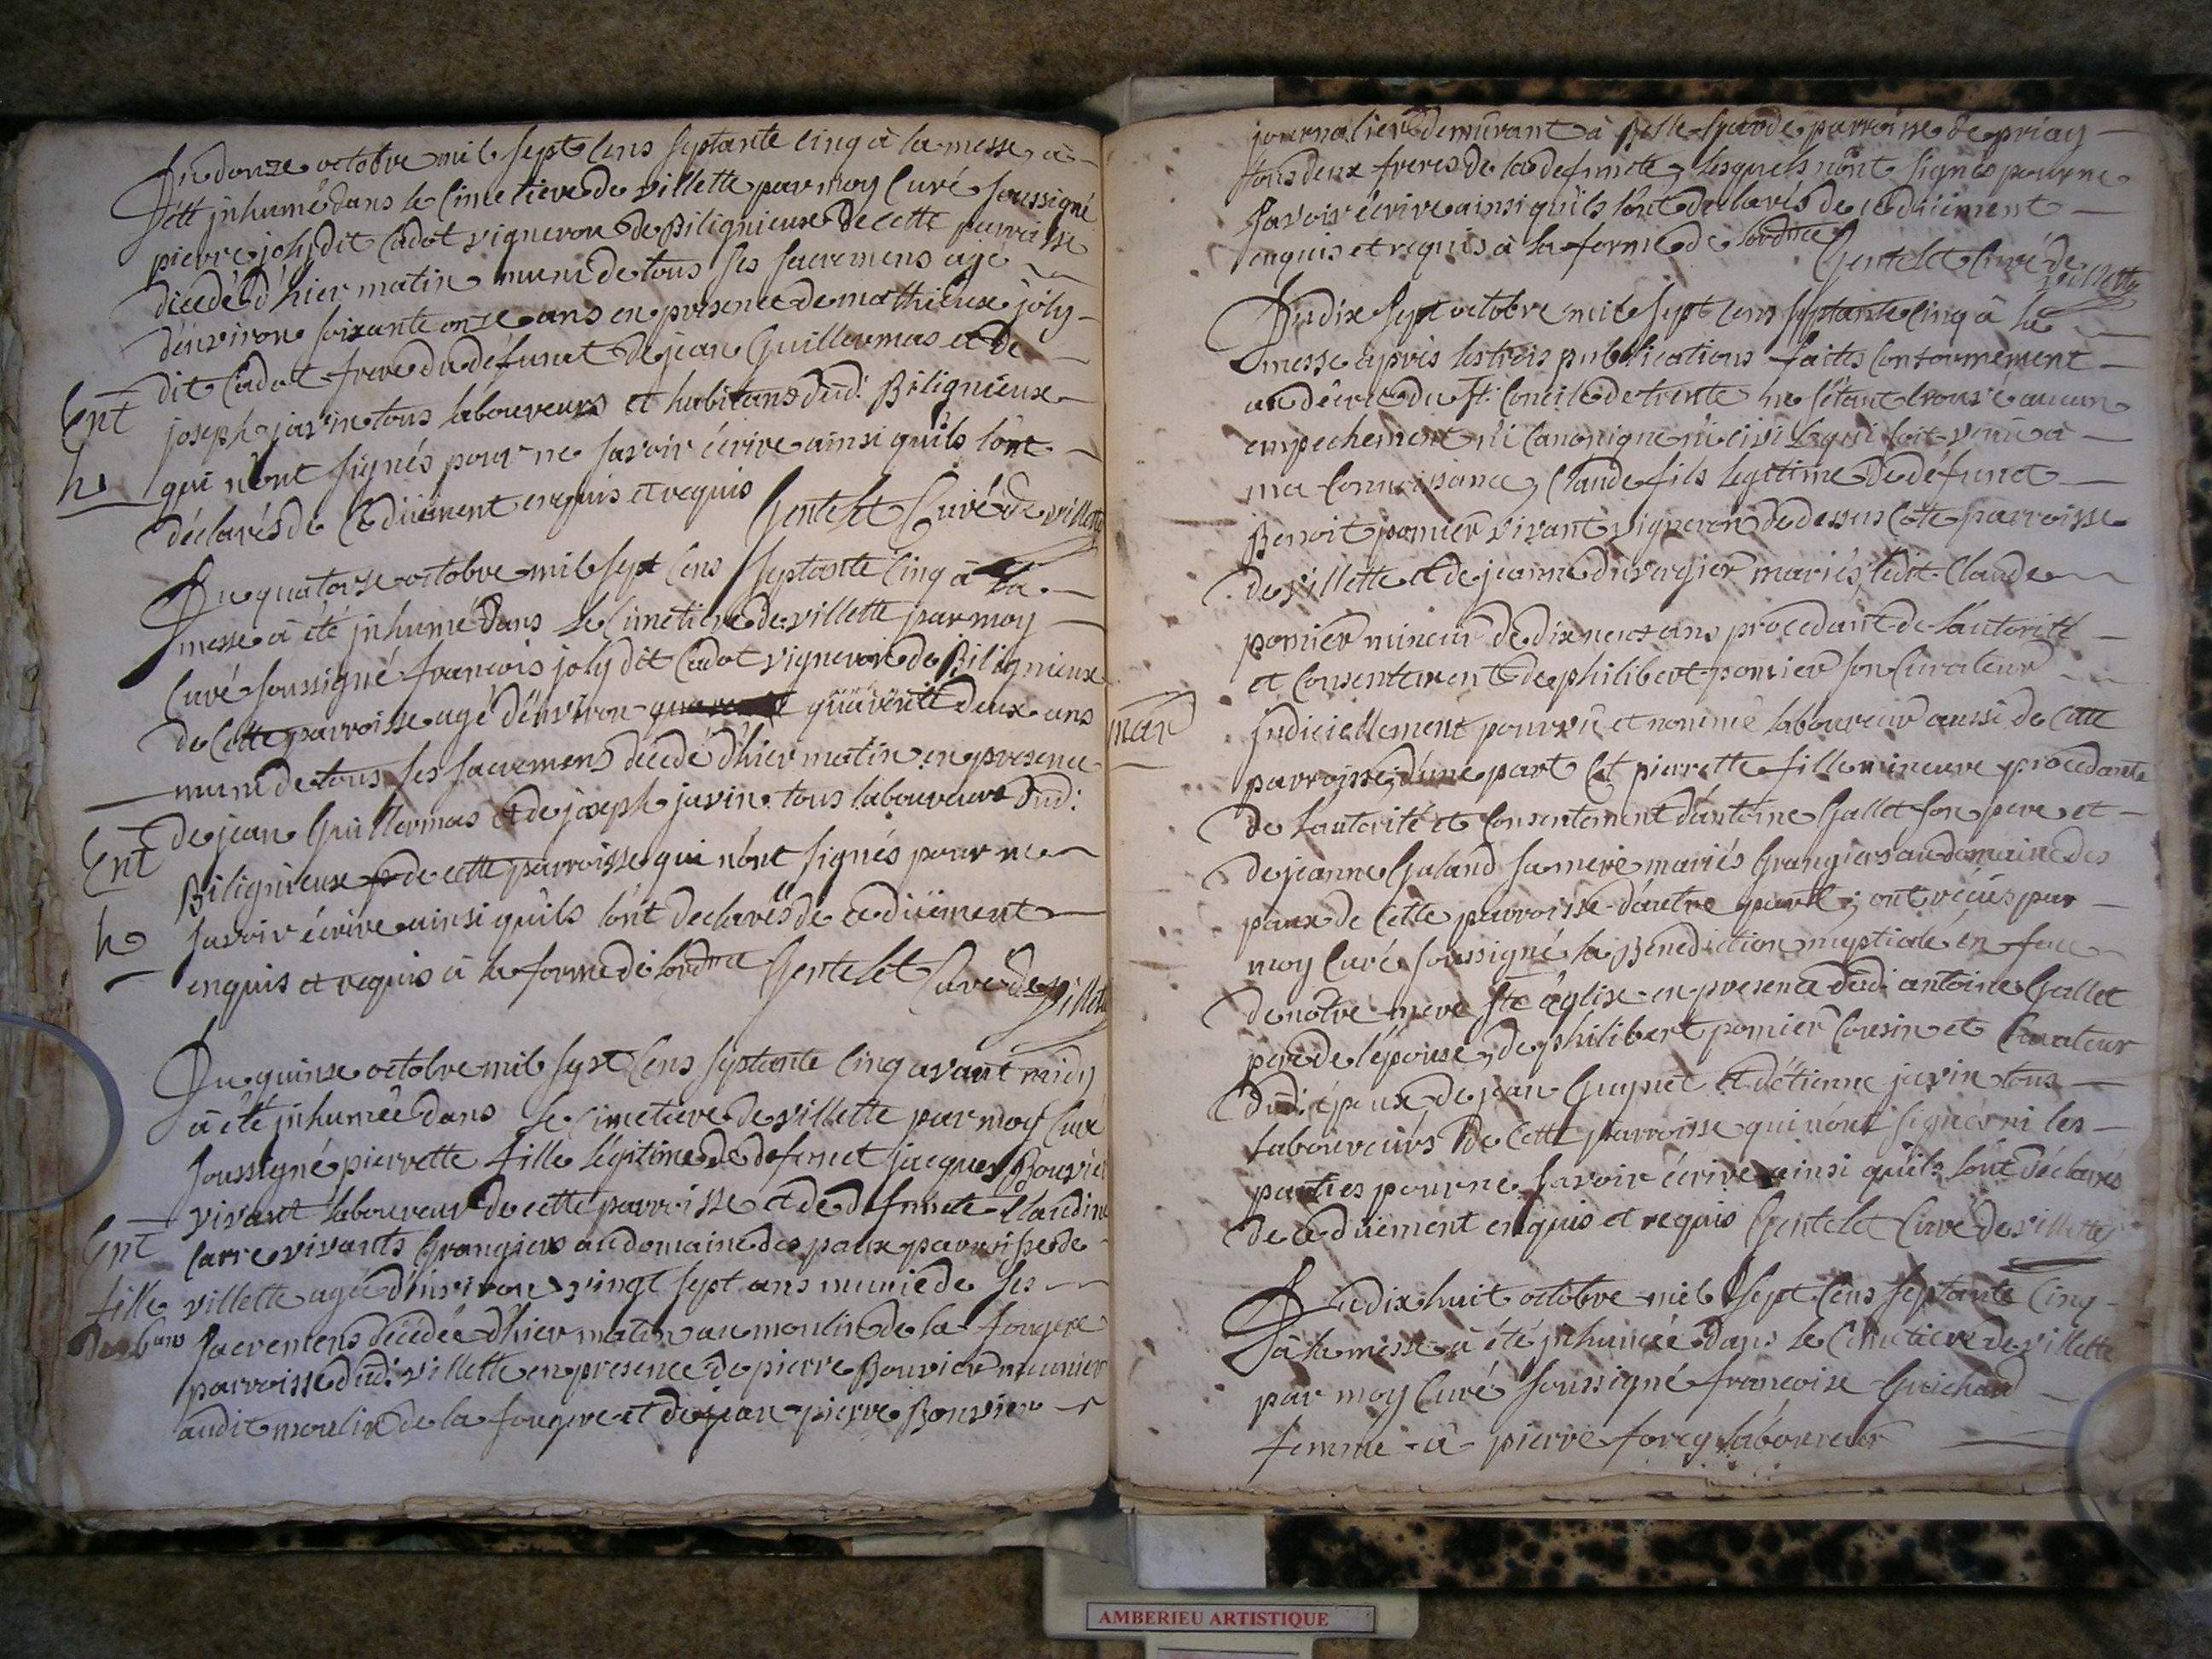 Du donze octobre mil sept cens septante cinq à la messe, à
été jnhumé dans le cimetiere de villette par moy Curé soussigné
pierre joly dit Cadot vigneron de Biligneux de cette parroisse
décedé d'hier matin muni de tous ses sacremens agé
d'environ soixante onze ans en presence de mathieux joly
dit Cadot frere du défunct de jean Guillermas et de
Ent
joseph javin tous laboureurs et habitans dud: Biligneux
h
qui n'ont signés pour ne savoir écrire ainsi qu'ils l'ont
déclarés de ce düement enquis et requis Gentelet Curé de villette
Du quatorze octobre mil sept cens septante cinq à la
messe à été jnhumé dans le cimetiere de villette par moy
Curé soussigné francois joly dit Cadot vigneron de Biligneux
de cette parroisse agé d'environ quarente deux ans
muni de tous ses sacremens décedé d'hier matin en presence
de jean Guillermas et de joseph javin tous laboureurs dud:
Ent
Biligneux de cette parroisse qui n'ont signés pour ne
h
savoir écrire ainsi qu'ils l'ont declarés de ce düement
enquis et requis à la forme de l'ordnce Gentelet Curé de villette
Du quinze octobre mil sept cens septante cinq avant midy
à été jnhumée dans le cimetiere de villette par moy Curé
soussigné pierrette fille légitime de defunct jacques Bouvier
vivant laboureur de cette parroisse et de defuncte Claudine
Ent
Carre vivants Grangiers au domaine des paux parroisse de
fille
villette agée d'environ vingt sept ans munie de ses
sacremens décedée d'hier matin au moulin de la fougere
parroisse dud: villette en presence de pierre Bouvier meunier
audit moulin de la fougere et de jean pierre Bouvier
journalier demeurant à parroisse de priay
tous deux freres de la defuncte, lesquels n'ont signés pour ne
savoir écrire ainsi qu'ils l'ont declarés de ce düement
enquis et requis à la forme de l'ordnce Gentelet Curé de villette
Du dix sept octobre mil sept cens septante cinq à la
messe apres les trois publications faites conformement
au décret du st: Concile de trente ne s'étant trouvé aucun
empechement ni canonique ni civil qui soit venu à
ma connoissance, Claude fils legitime de défunct
Benoit pomier vivant vigneron de dessus côte parroisse
de villette et de jeanne duvergier mariés; ledit Claude
pomier mineur de dix neuf ans procedant de l'autorité
et consentement de philibert pomier son Curateur
mar
judiciellement pourvû et nommé laboureur aussi de cette
parroisse, d'une part et pierrette fille mineure procedante
de l'autorité et consentement d'antoine Gallet son pere et
de jeanne Galand sa mere mariés Grangiers au domaine des
paux de cette parroisse d'autre part; ont reçus par
moy Curé soussigné la Benediction nuptiale en face
de notre mere ste église en presence dud: antoine Gallet
pere de l'épouse, de philibert pomier cousin et Curateur
dud: époux de jean Guynet et d'étienne javin tous
laboureurs de cette parroisse qui n'ont signés ni les
parties pour ne savoir écrire ainsi qu'ils l'ont déclarés
de ce düement enquis et requis Gentelet Curé de villette
Du dix huit octobre mil sept cens septante cinq
à la messe à été jnhumée dans le cimetiere de villette
par moy Curé soussigné francoise Guichard
femme à pierre forey laboureur
AMBERIEU ARTISTIQUE